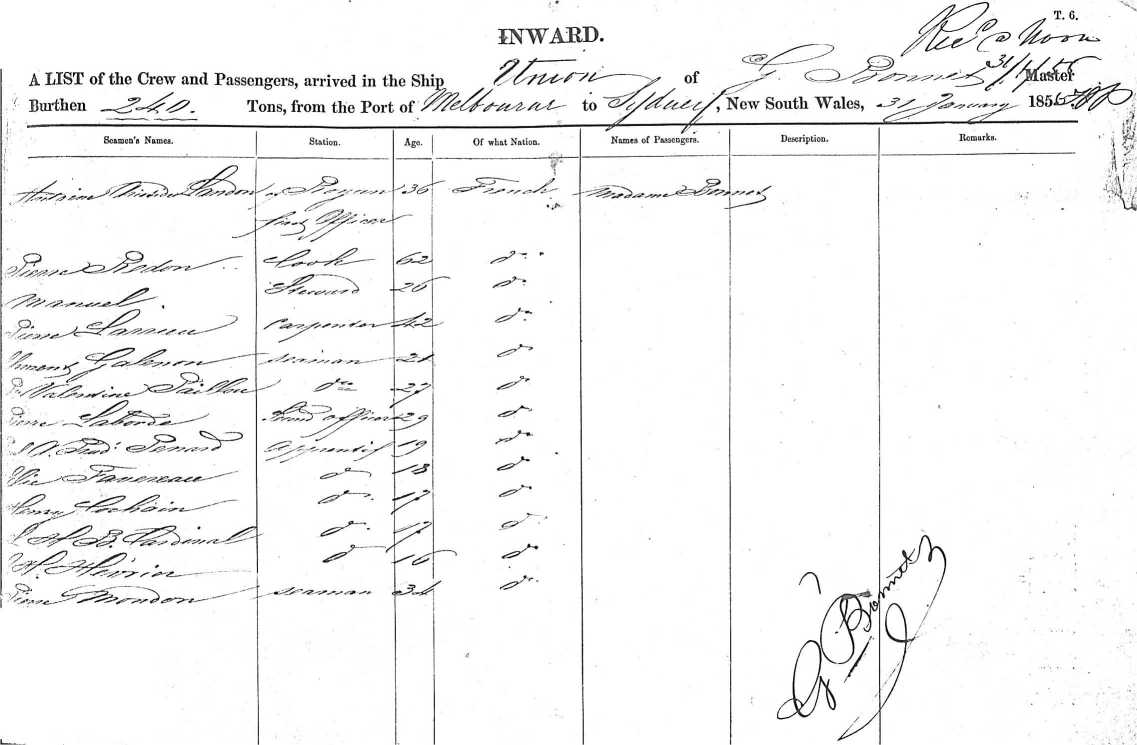 T. 6.
INWARD.
Rec^d @ Noon
31/1/56
A LIST of the Crew and Passengers, arrived in the Ship Union of G Bonnet Master
Burthen 240 Tons, from the Port of Melbourne to Sydney, New South Wales, 31 January 1856
Seamen's Names. Station. Age. Of what Nation. Names of Passengers. Description. Remarks.
Landon 36 French Madame Bonnet
first Officer
Pierre Redon Cook 62 d^o
Manuel Steward 26 d^o
Pierre Carpenter 42 d^o
Galenon seaman 21 d^o
Valentine d^o 27 d^o
Pierre Laborde officer 29 d^o
Fred: Penard apprentif 19 d^o
Favereau d 18 d^o
Henry d^o 17 d^o
H B. Cardinal d^o 17 d^o
H. d 16 d^o
Pierre Mondon seaman 34 d^o
G Bonnet